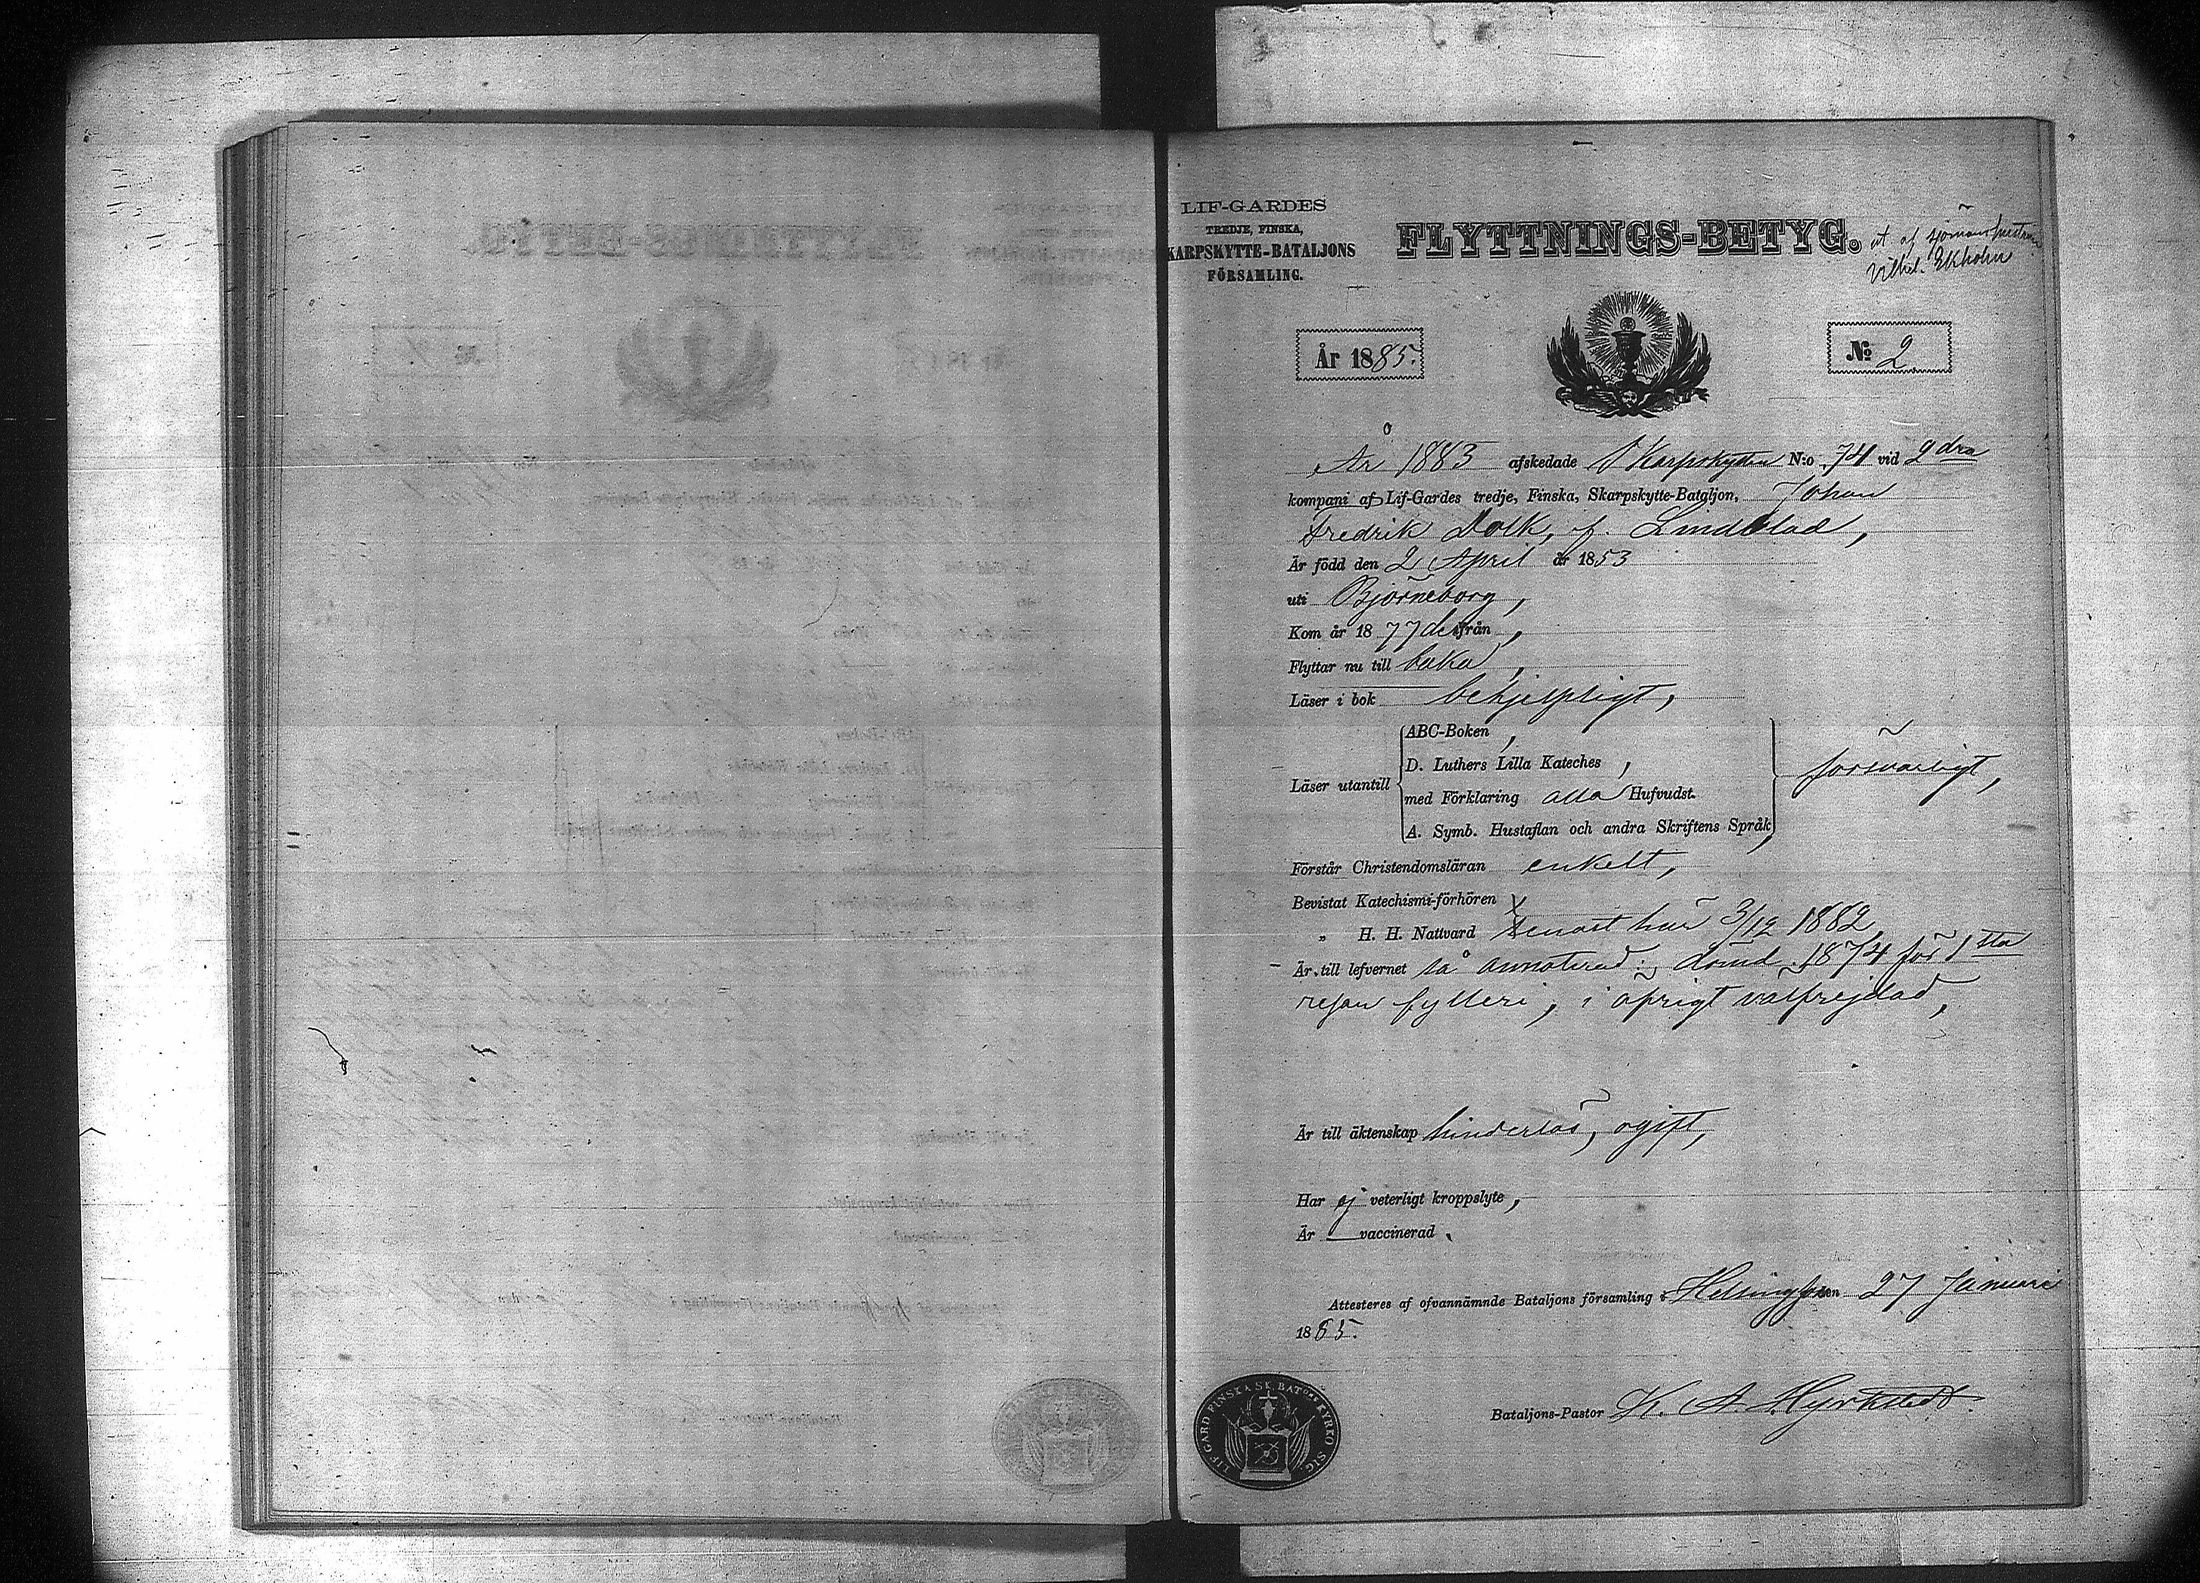 LIF-GARDES
TREDJE, FINSKA,
KARPSKYTTE-BATALJONS
FÖRSAMLING.
FLYTTNINGS-BETYG.
af
Vilhel. Ekholm
År 1885.
No 2
År 1883 afskedade Skarpskytten N:o 74 vid 2dra
kompani af Lif-Gardes tredje, Finska, Skarpskytte-Bataljon, Johan
Fredrik Dolk, f. Lindblad,
Är född den 2 April år 1853
uti Björneborg,
Kom år 1877 derifrån,
Flyttar nu till baka,
Läser i bok behjelpligt,
Läser utantill
ABC-Boken,
D. Luthers Lilla Kateches,
med Förklaring alla Hufvudst.
A. Symb. Hustaflan och andra Skriftens Språk,
försvarligt,
Förstår Christendomsläran enkelt,
Bevistat Katechismi-förhören
„ H. H. Nattvard senast här 3/12 1882,
Är till lefvernet så annoterad: dömd 1874 för 1sta
resan fylleri, i öfrigt välfrejdad,
Är till äktenskap hinderlös, ogift,
Har ej veterligt kroppslyte,
Är — vaccinerad.
Attesteres af ofvannämnde Bataljons församling i Helsingfors den 27 Januari
1885.
Bataljons-Pastor K. A. Hyrkstedt.
LIF GARD FINSKA SK. BATONS KYRKO SIG.